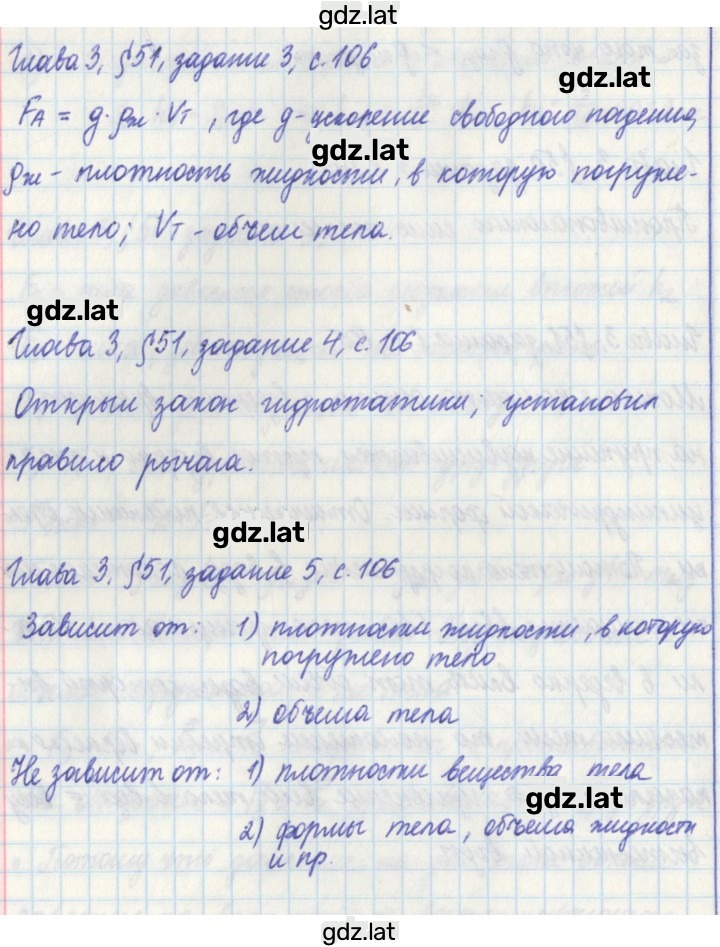 gdz.lat
Глава 3, §51, задание 3, с. 106
gdz.lat
FА = g · ρж · Vт , где g - ускорение свободного падения,
gdz.lat
ρж - плотность жидкости, в которую погруже-
но тело; Vт - объем тела.
gdz.lat
Глава 3, §51, задание 4, с. 106
Открыл закон гидростатики, установил
правило рычага.
gdz.lat
Глава 3, §51, задание 5, с. 106
Зависит от: 1) плотности жидкости, в которую
погружено тело
2) объема тела
Не зависит от: 1) плотности вещества тела
gdz.lat
2) формы тела, объема жидкости
и пр.
gdz.lat